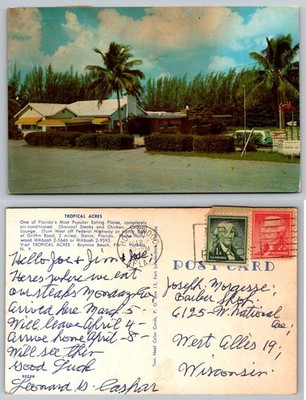 TROPICAL ACRES
One of Florida's Most Popular Eating Places, completely
air-conditioned. Charcoal Steaks and Chicken,
Lounge. (Turn West off Federal Highway
at Griffin Road, 2 miles). Dania, Florida.
wood WAbash 2-5646 or WAbash 2-9593.
Visit TROPICAL ACRES - Boynton Beach,
N. Y.
Hello Joe & Irvin & Joe,
Heres where we eat
our steaks Monday
Arrived here March 5-
Will leave April 4-
Arrive home April -8-
Will see then
Good Luck
Leonard D. Caspar
POST CARD
Joseph
Barber Shop.
6125-W. National
Ave,
West Allis 19,
Wisconsin.